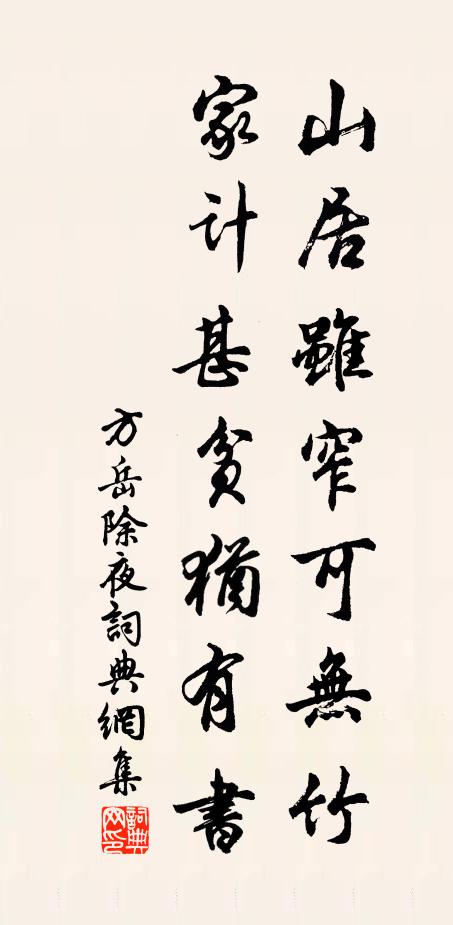 山居雖窄可無竹
家计甚貧猶有書
方岳除夜詞典網集
詞典网印